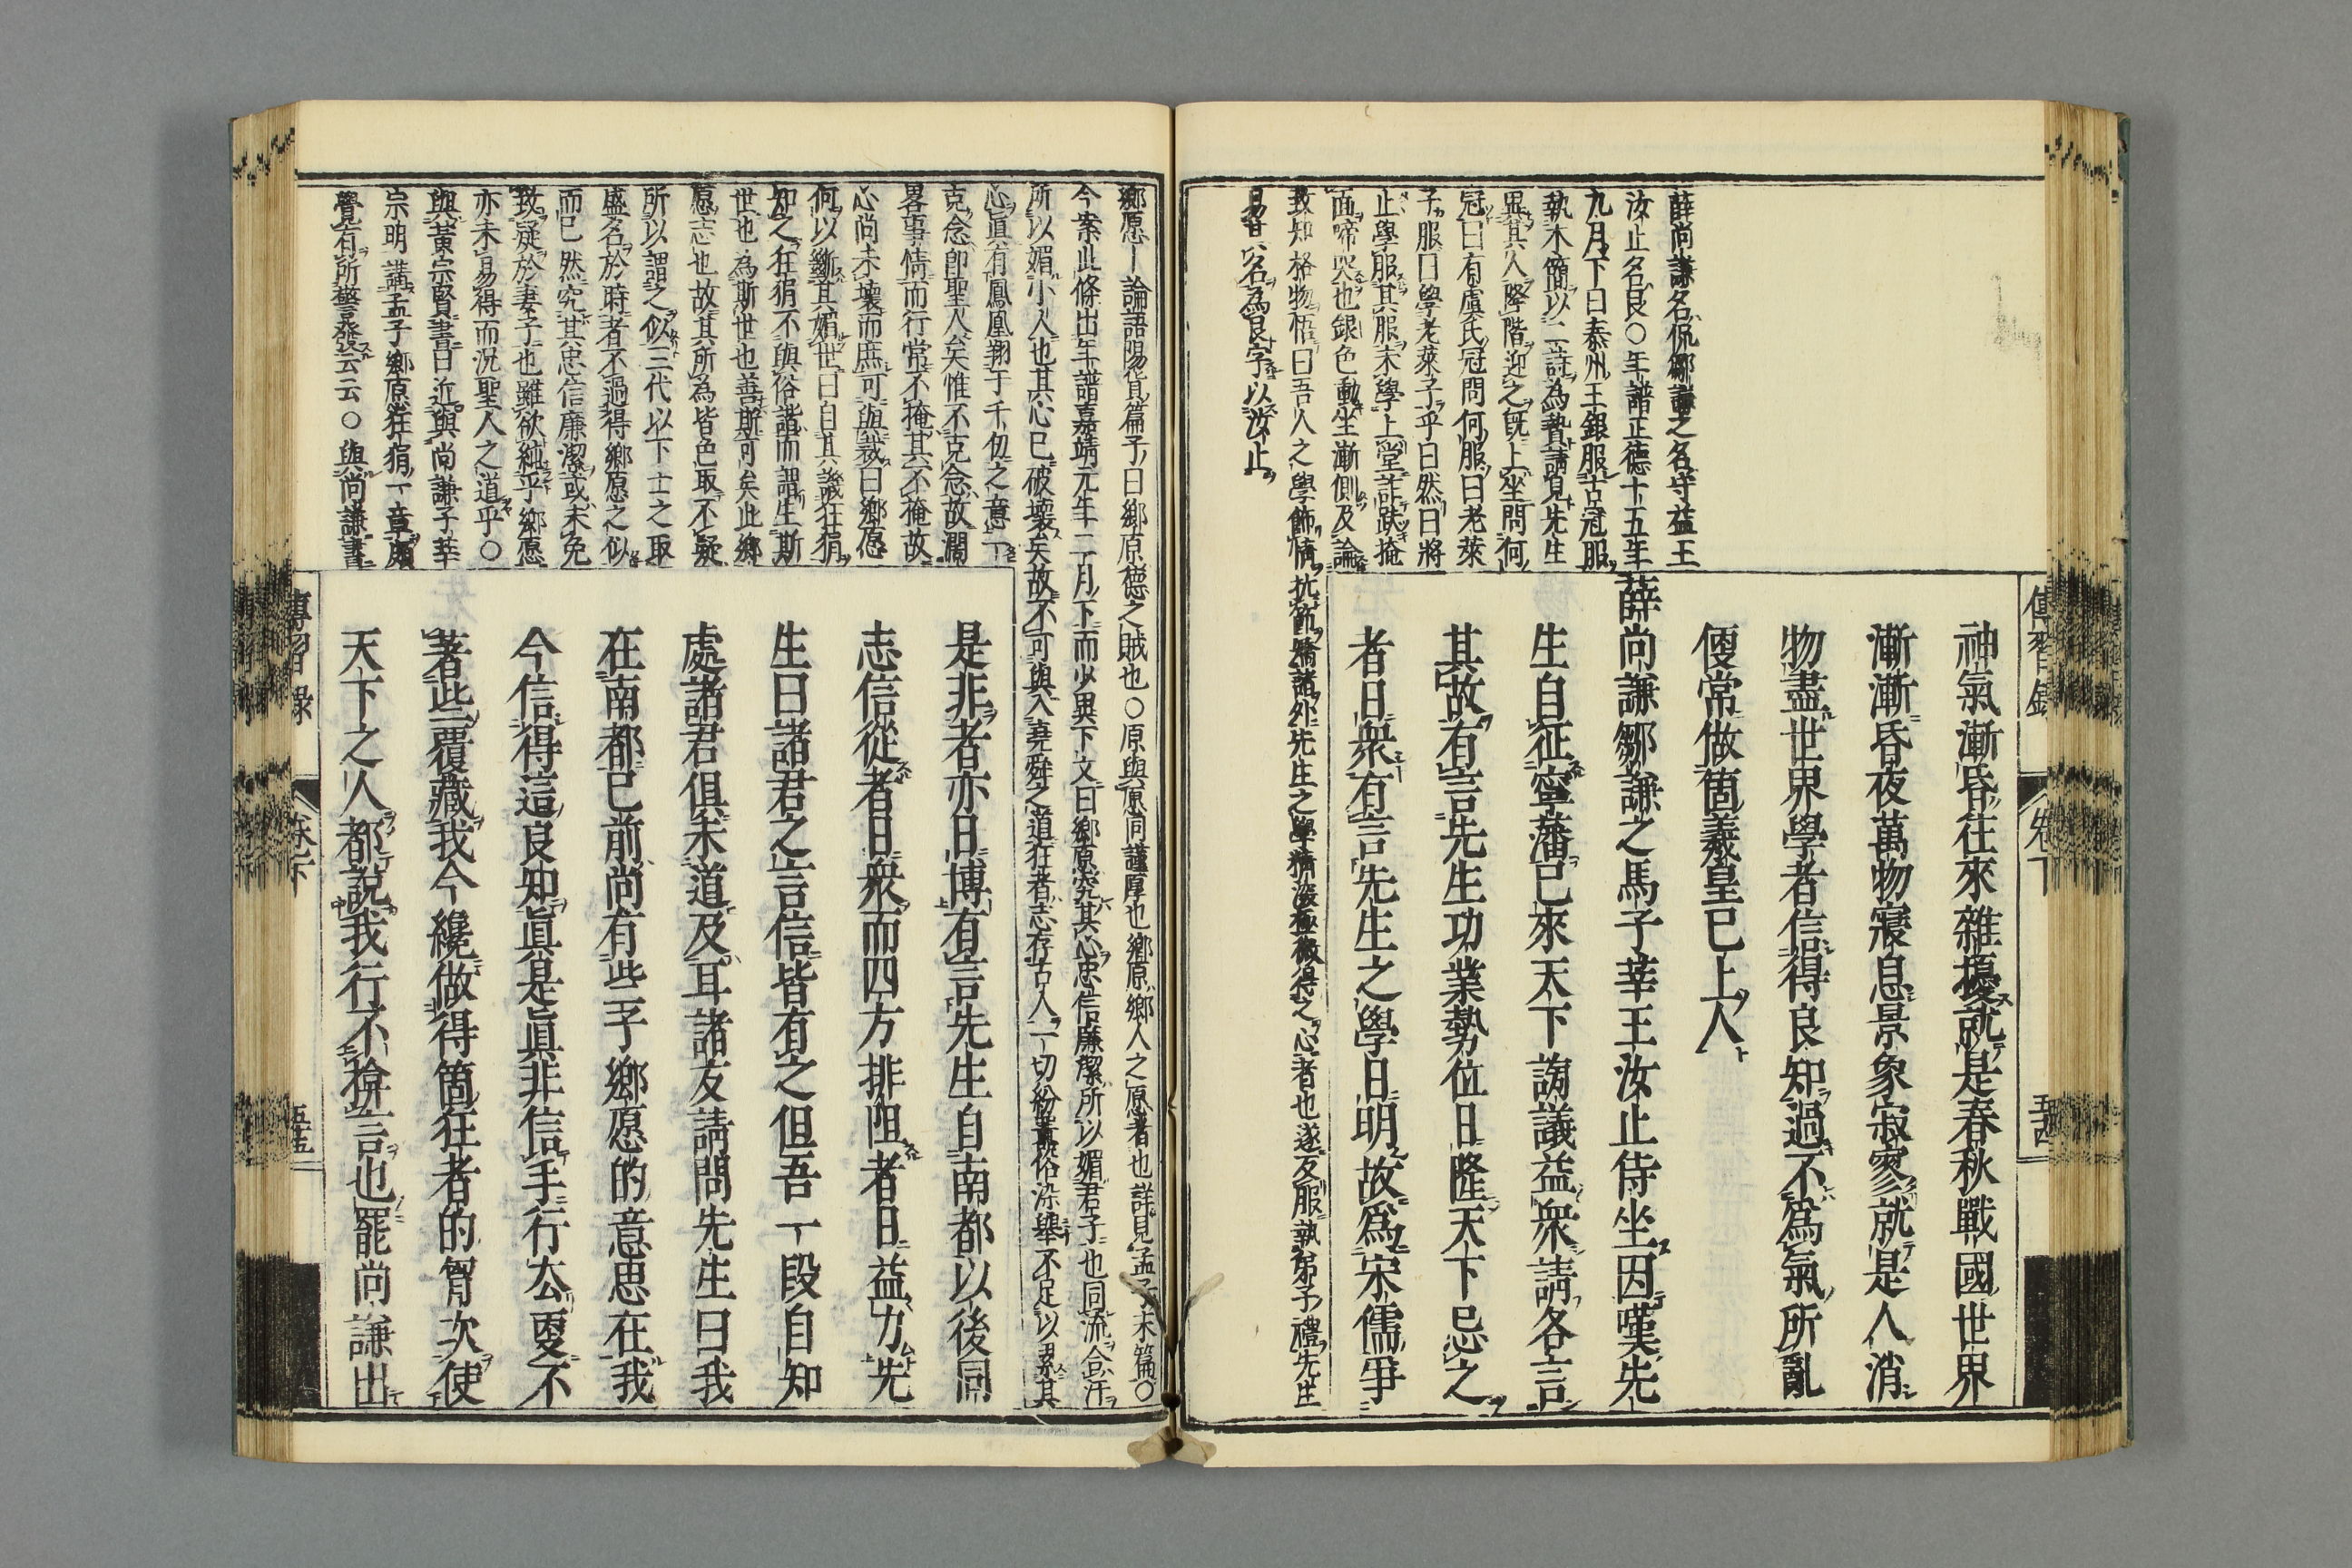 傳習錄
卷下
五十四
神氣漸昏往來雜擾就是春秋戰國世界
漸漸昏夜萬物寢息景象寂寥就是人消
物盡世界學者信得良知過不爲氣所亂
便常做箇羲皇已上人
薛尚謙鄒謙之馬子莘王汝止侍坐因嘆先
生自征寧藩已來天下謗議益衆請各言
其故有言先生功業勢位日隆天下忌之
者日衆有言先生之學日明故爲宋儒爭
薛尚謙名侃鄒謙之名守益王
汝止名艮○年譜正德十五年
九月下曰泰州王銀服古冠服
執木簡以二詩為贄請見先生
異其人降階迎之既上坐問何
冠曰有虞氏冠問何服曰老萊
子服曰學老萊子乎曰然曰將
止學服其服未學上堂詐跌掩
面啼哭也銀色動坐漸側及論
致知格物悟曰吾人之學飾情抗節矯諸外先生之學精深極微得之心者也遂反服執弟子禮先生
易其名為艮字以汝止
鄉愿一論語陽貨篇子曰鄉原德之賊也○原與愿同謹厚也鄉原鄉人之愿者也詳見孟子末篇○
今案此條出年譜嘉靖元年二月下而少異下文曰鄉原究其心忠信廉潔所以媚君子也同流合汙
所以媚小人也其心已破壞矣故不可與入堯舜之道狂者志存古人一切紛囂俗染舉不足以累其
心眞有鳳凰翔于千仞之意一
克念卽聖人矣惟不克念故濶
畧事情而行常不掩其不掩故
心尚未壞而庶可與裁曰鄉愿
何以斷其媚世曰自其譏狂狷
知之狂狷不與俗諧而謂生斯
世也為斯世也善斯可矣此鄉
愿志也故其所為皆色取不疑
所以謂之似三代以下士之取
盛名於時者不過得鄉愿之似
而已然究其忠信廉潔或未免
致疑於妻子也雖欲純乎鄉愿
亦未易得而況聖人之道乎○
與黃宗賢書曰近與尚謙子莘
宗明講孟子鄉愿狂狷一章頗
覺有所警發云云○與尚謙書
是非者亦日博有言先生自南都以後同
志信從者日衆而四方排阻者日益力先
生曰諸君之言信皆有之但吾一段自知
處諸君俱未道及耳諸友請問先生曰我
在南都已前尚有些子鄉愿的意思在我
今信得這良知眞是眞非信手行去更不
著些覆藏我今纔做得箇狂者的胷次使
天下之人都說我行不揜言也罷尚謙出
傳習錄
卷下
五十五